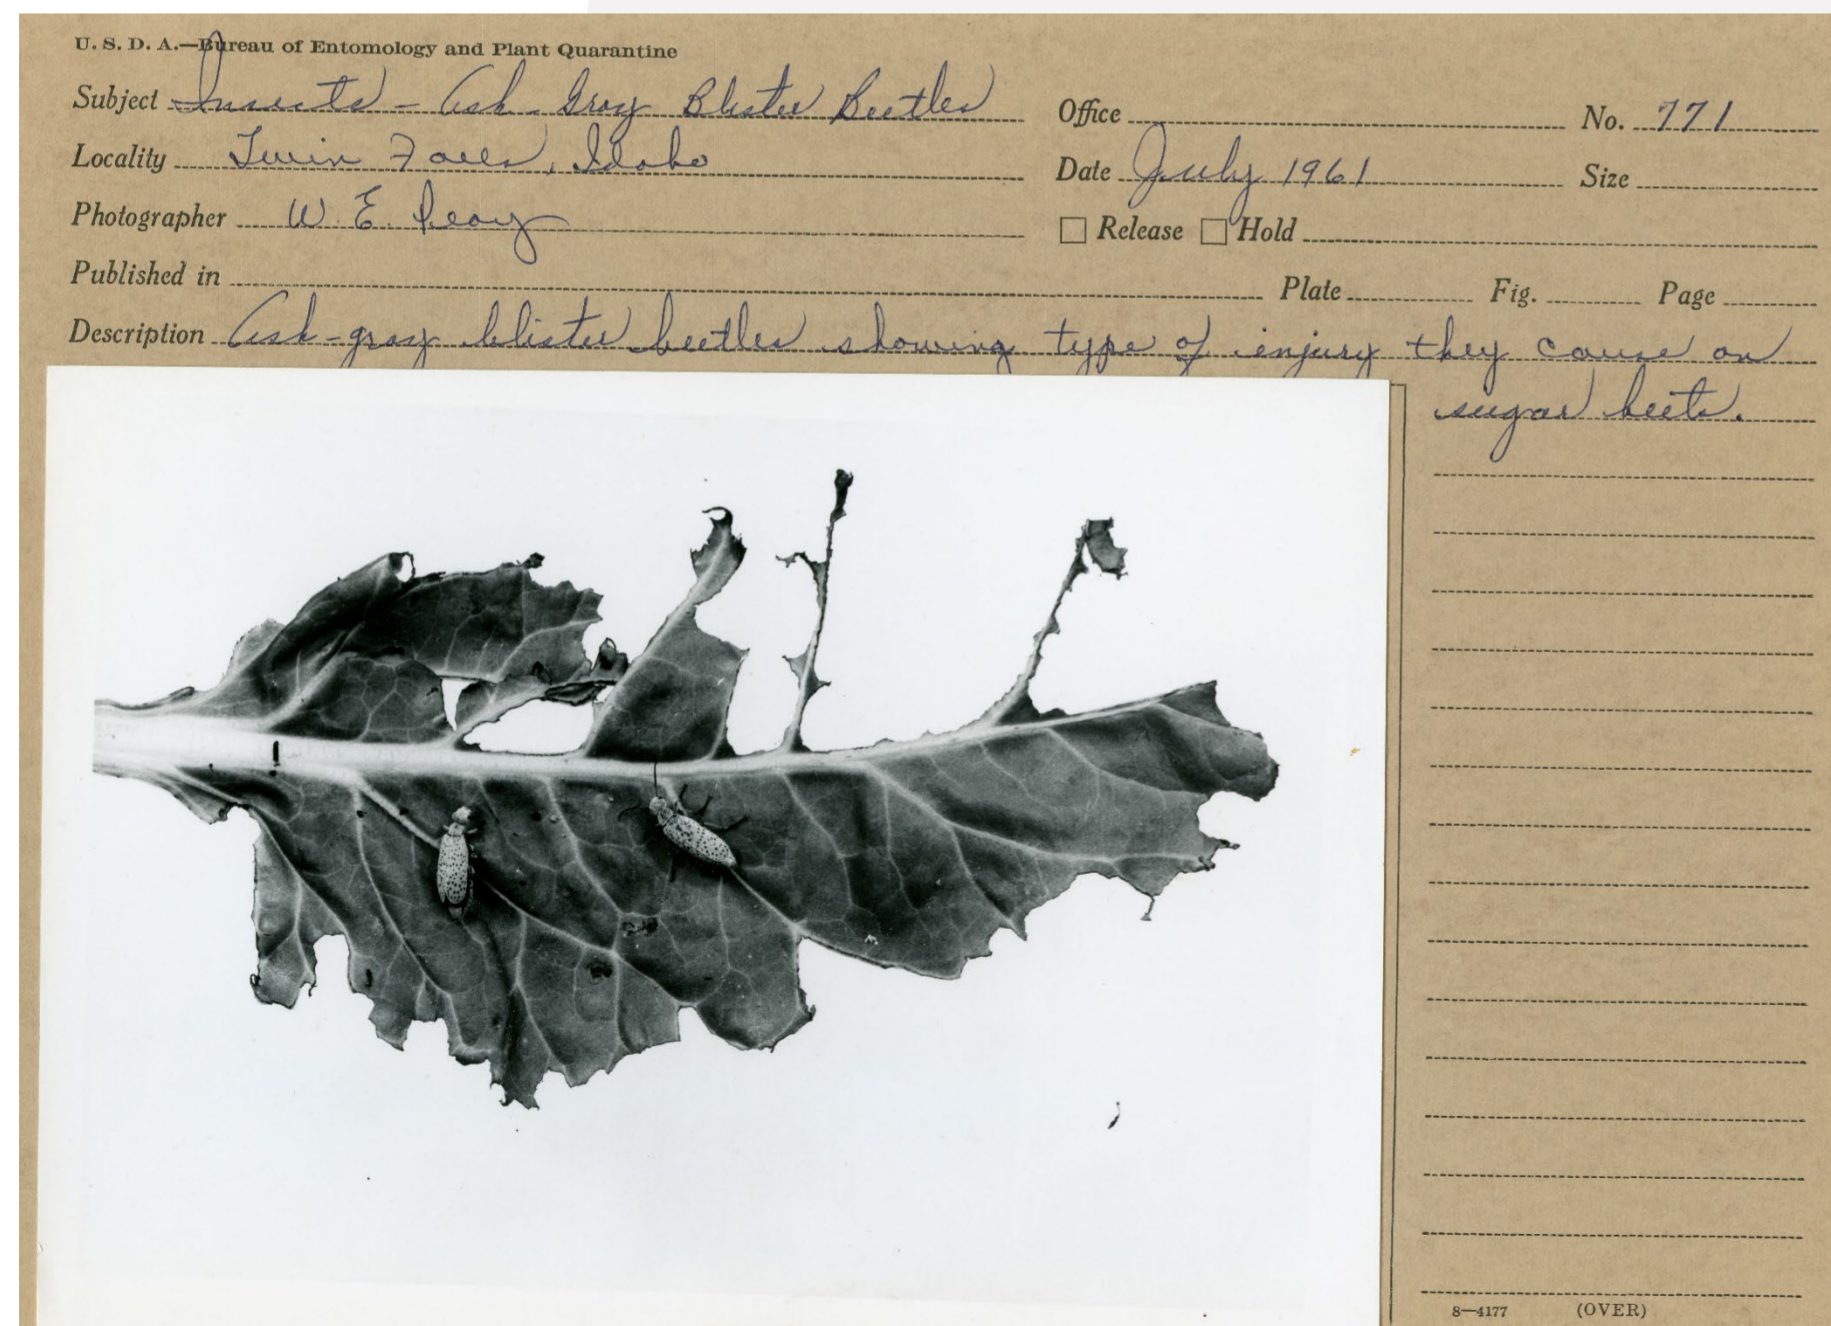 U. S. D. A.—Bureau of Entomology and Plant Quarantine
Subject Insects - Ash-Gray Blister Beetles Office No. 771
Locality Twin Falls, Idaho Date July 1961 Size
Photographer W. E. Peay Release Hold
Published in Plate Fig. Page
Description Ash-gray blister beetles showing type of injury they cause on
sugar beets.
8—4177 (OVER)